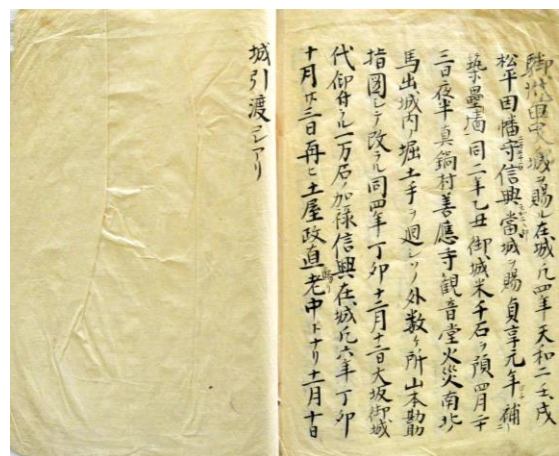 駿州田中ノ城ヲ賜ル在城凡四年天和二壬戌
松平因幡守信興當城ヲ賜貞享元年補
築壘墻同二年乙丑御城米千石ヲ預四月廿
三日夜半真鍋村善應寺観音堂火災南北ノ
馬出城内ノ堀土手ヲ廻シソノ外数ヶ所山本勘助
指圖シテ改ラル同四年丁卯十二月十二日大坂御城
代御付ラル一万石ノ加禄信興在城凡六年丁卯
十月廿三日再ヒ土屋政直老中トナリ十二月十日
城引渡コレアリ